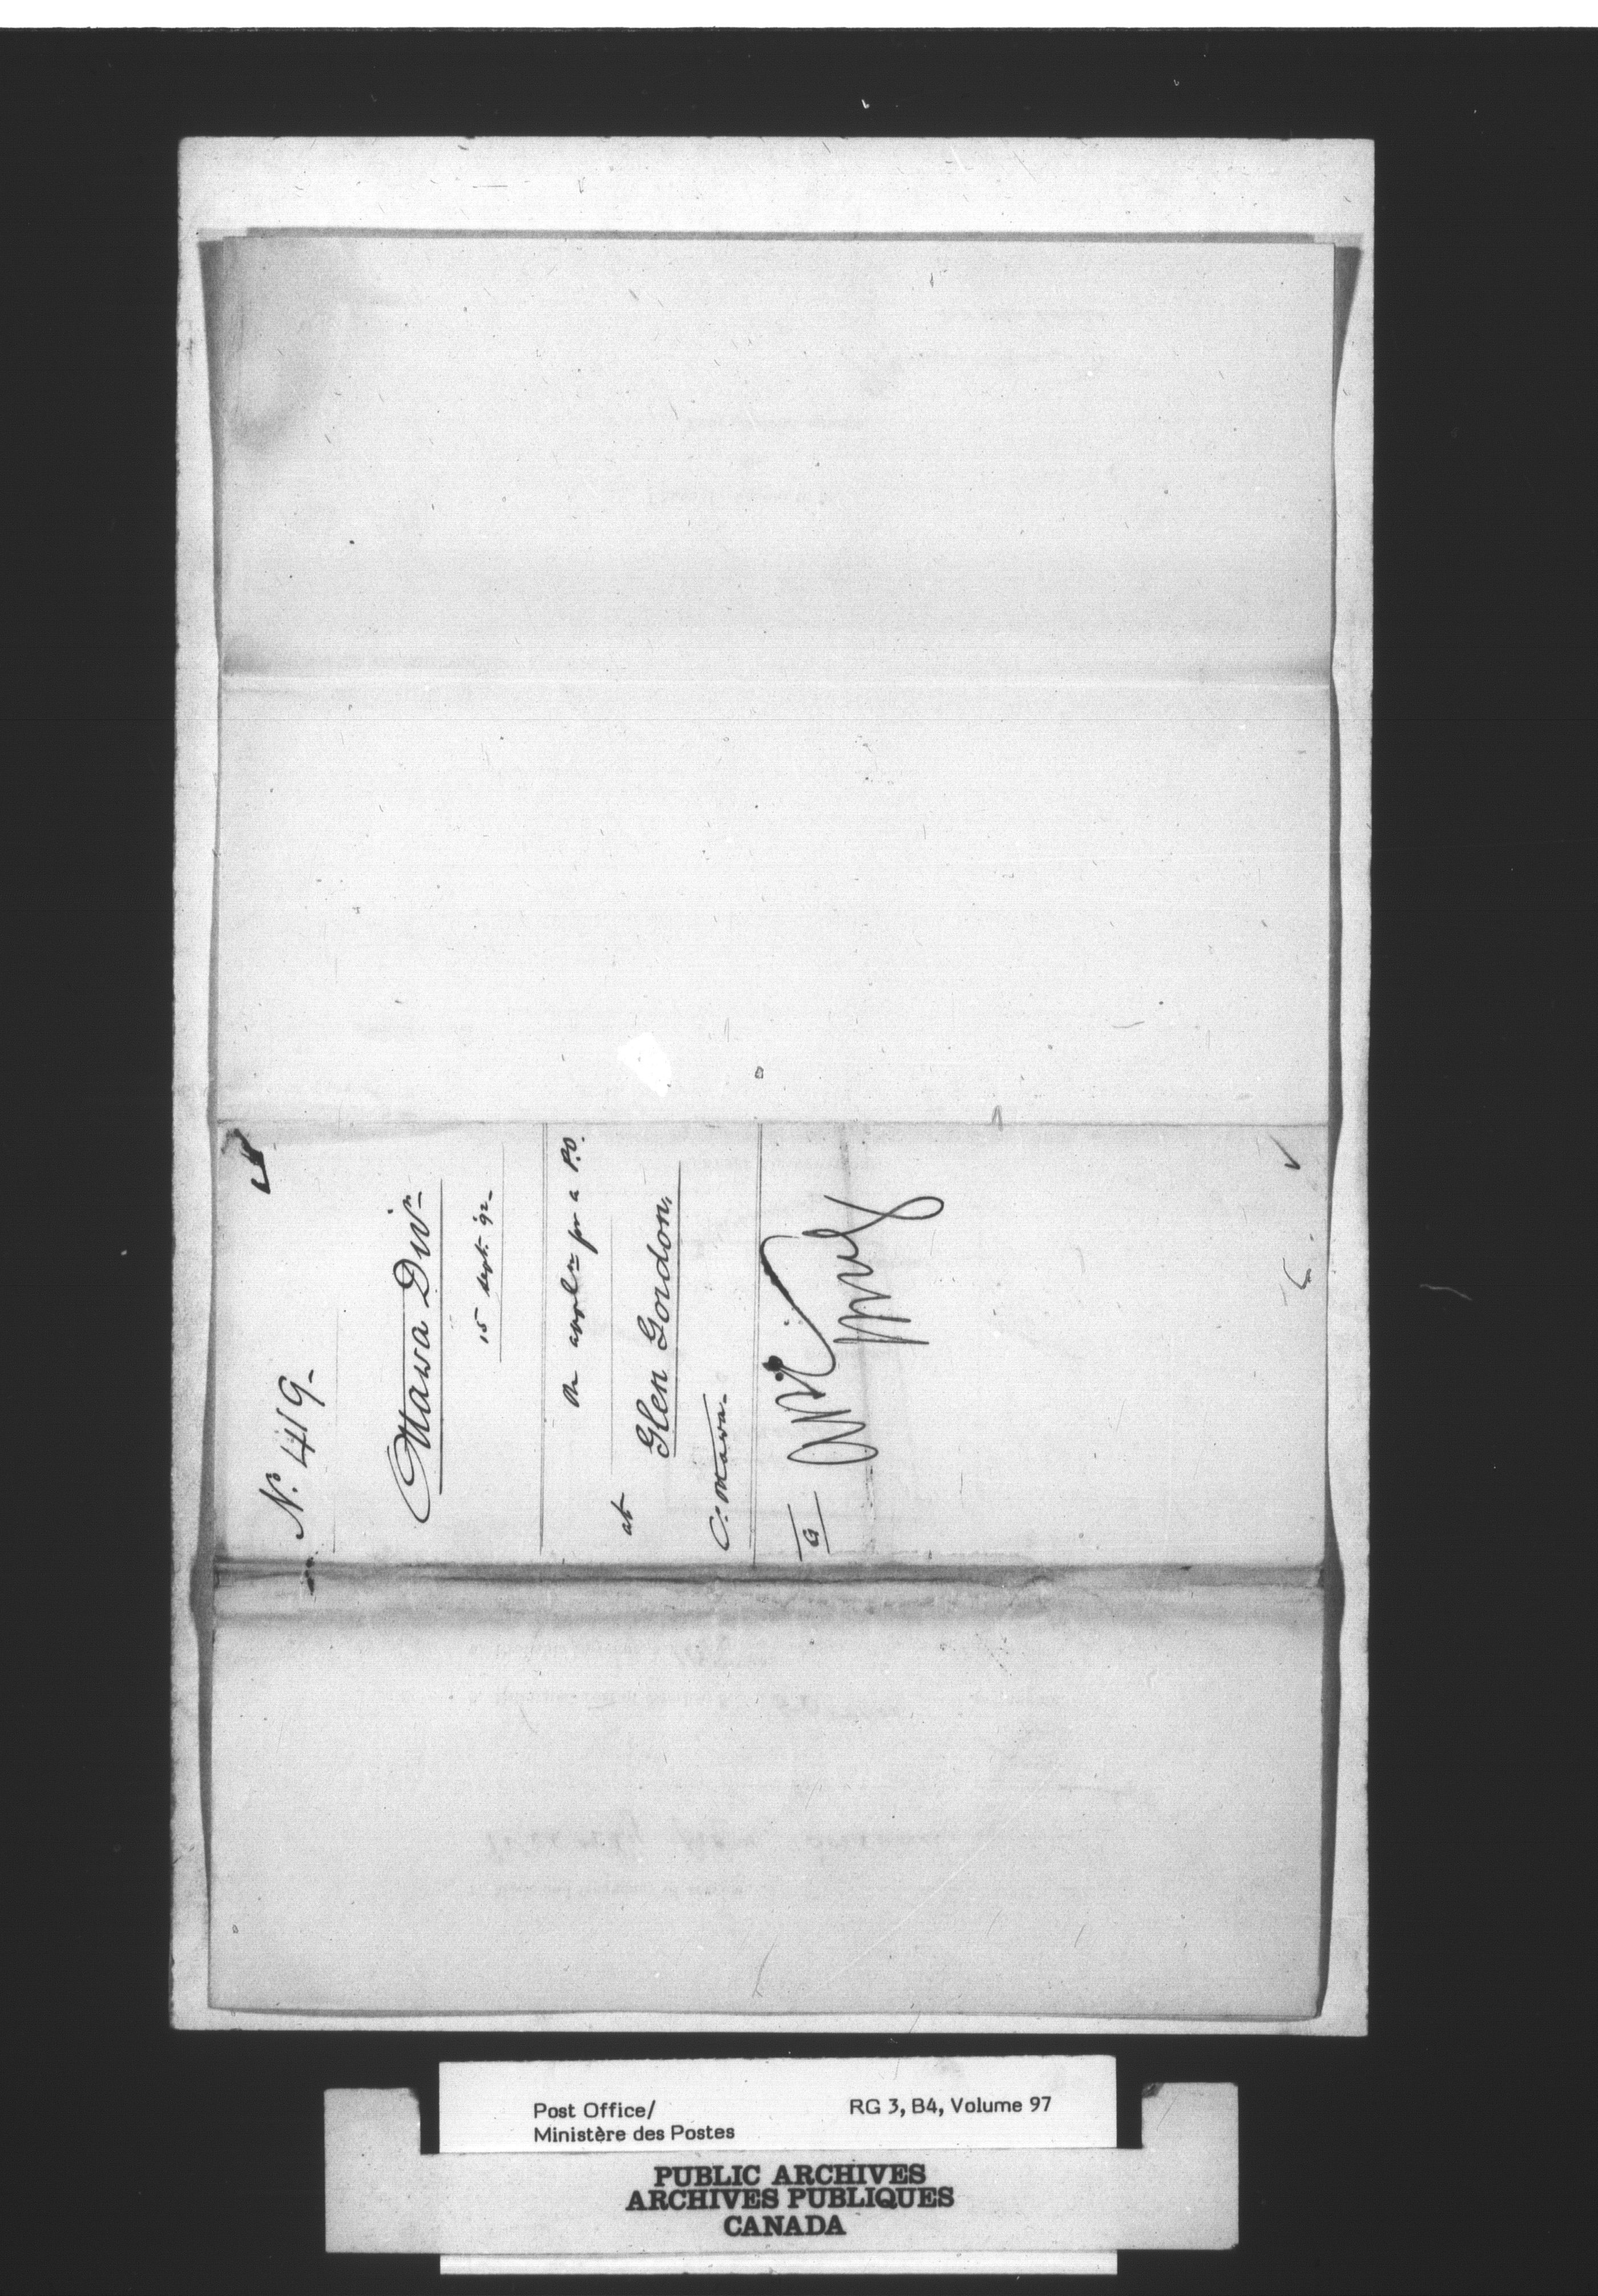 N. 419-
Ottawa Divn-
15 Sept. 92-
On appln for a P.O.
at
Glen Gordon,
C. Ottawa-
G
Post Office/
Ministère des Postes
RG 3, B4, Volume 97
PUBLIC ARCHIVES
ARCHIVES PUBLIQUES
CANADA